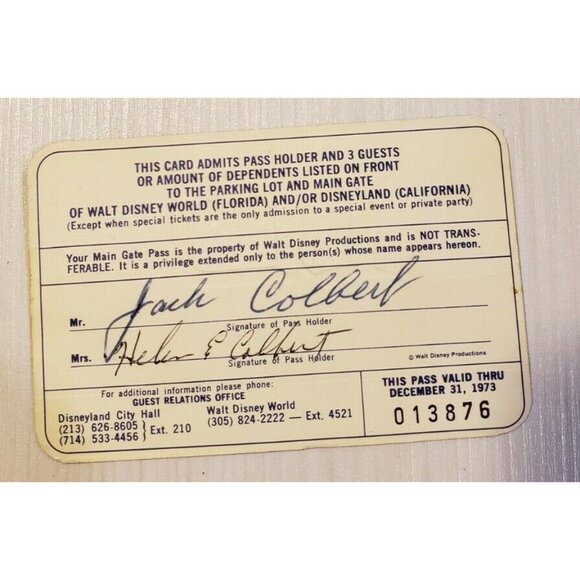 THIS CARD ADMITS PASS HOLDER AND 3 GUESTS
OR AMOUNT OF DEPENDENTS LISTED ON FRONT
TO THE PARKING LOT AND MAIN GATE
OF WALT DISNEY WORLD (FLORIDA) AND/OR DISNEYLAND (CALIFORNIA)
(Except when special tickets are the only admission to a special event or private party)
Your Main Gate Pass is the property of Walt Disney Productions and is NOT TRANS-
FERABLE. It is a privilege extended only to the person(s) whose name appears hereon.
Mr. Jack Colbert
Signature of Pass Holder
Mrs. Helen E Colbert
Signature of Pass Holder
© Walt Disney Productions
For additional information please phone:
GUEST RELATIONS OFFICE
Disneyland City Hall
(213) 626-8605
(714) 533-4456 } Ext. 210
Walt Disney World
(305) 824-2222 — Ext. 4521
THIS PASS VALID THRU
DECEMBER 31, 1973
013876